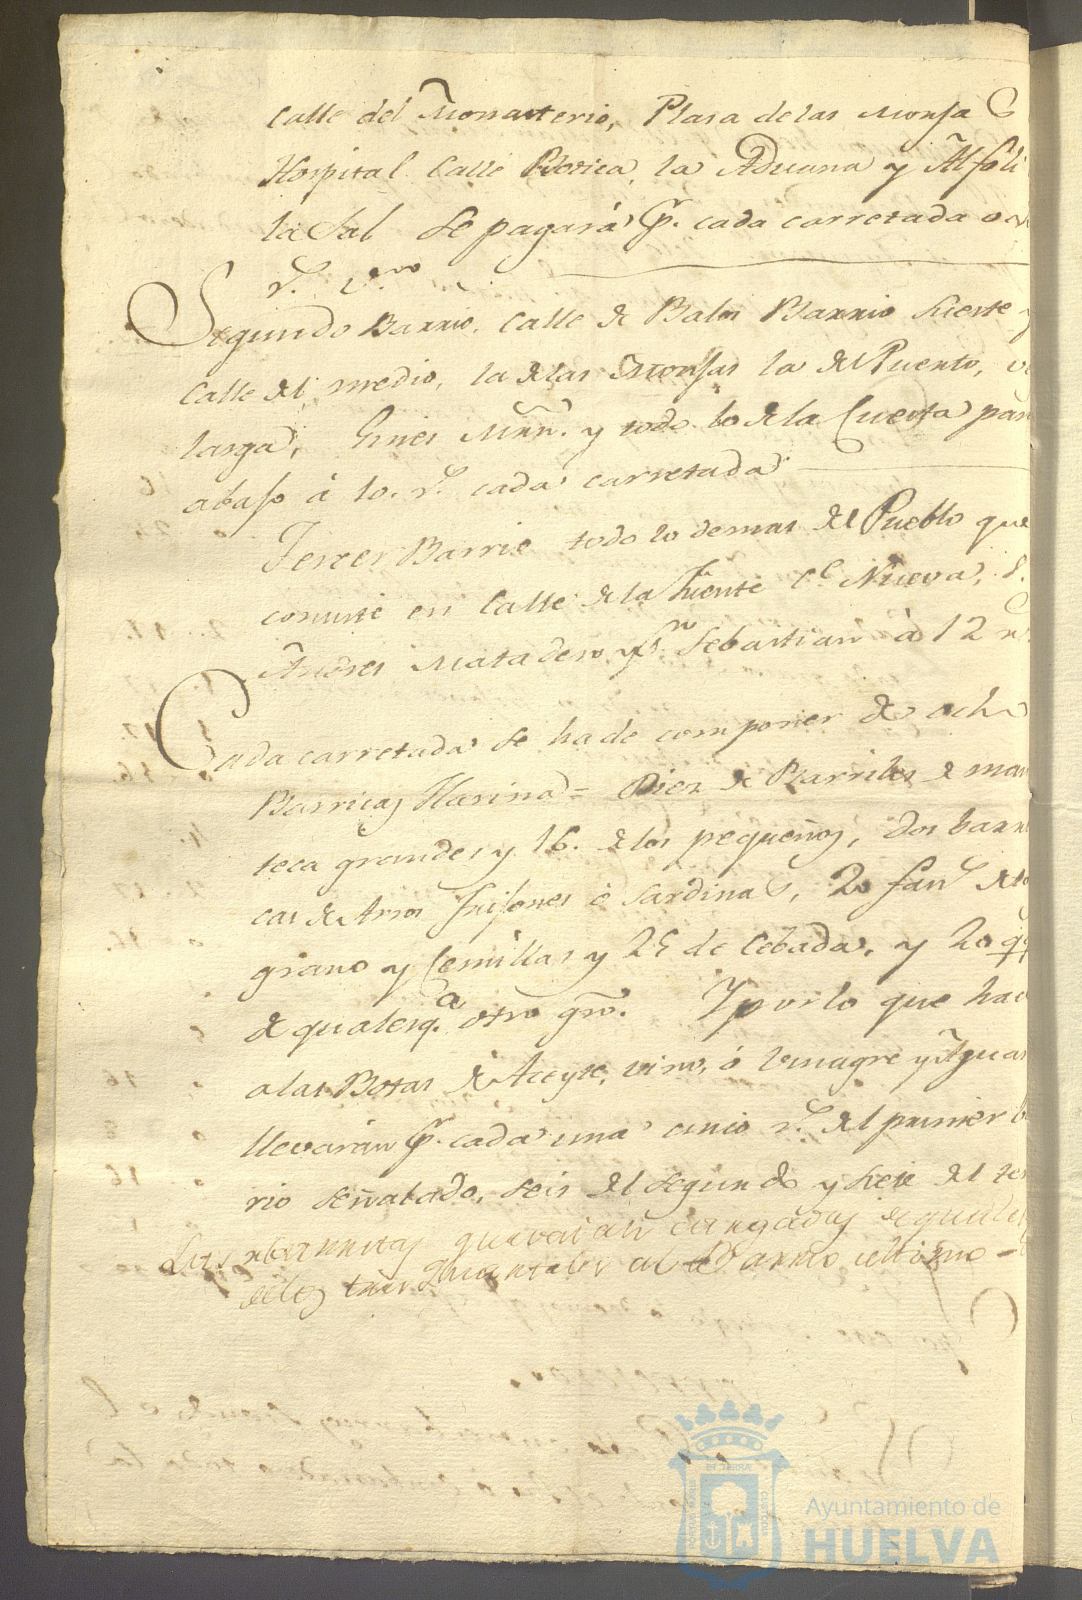 Calle del Monasterio, Plasa de las Monjas
Hospital Calle Botica, la Aduana y Alfoli
la Sal se pagará pr. cada carretada
rs. vno.
Segundo Barrio, Calle de Balos Barrio fuerte y
Calle del medio, la de las Monjas la del Puerto,
larga, Gines Mrn. y todo lo de la Cuesta para
abajo á 10. rs. cada carretada
Tercer Barrio todo lo demas del Pueblo que
conciste en Calle de la Fuente Ce. Nueva, S.
Andres Matadero y Sn. Sebastian à 12 rs
Cada carretada se ha de componer de ocho
Barricas Harina = Diez de Barriles de man
teca grandes y 16. de los pequeños, dos barri
cas de Arros frijones ó sardinas, 20 fans. de
grano y Cemillas y 25 de Cebada, y 20 qq
de qualesqa. otro gro. Y por lo que hace
a las Botas de Aceyte, vino, ó vinagre y Aguar
llevarán pr. cada una cinco rs. del primer b
rio señalado, seis del segundo y siete del ter
Las barricas que vaian cargadas
quintales al Barrio ultimo
Ayuntamiento de
HUELVA